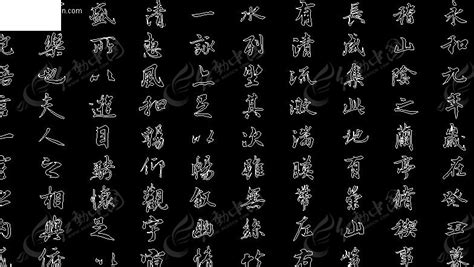 永和九年歲在癸丑暮
稽山陰之蘭亭脩禊事
長咸集此地有崇山峻
有清流激湍映帶左右
水列坐其次雖無絲竹
一詠亦足以暢敘幽情
清惠風和暢仰觀宇宙
盛所以遊目騁懷足以
樂也夫人之相與俯